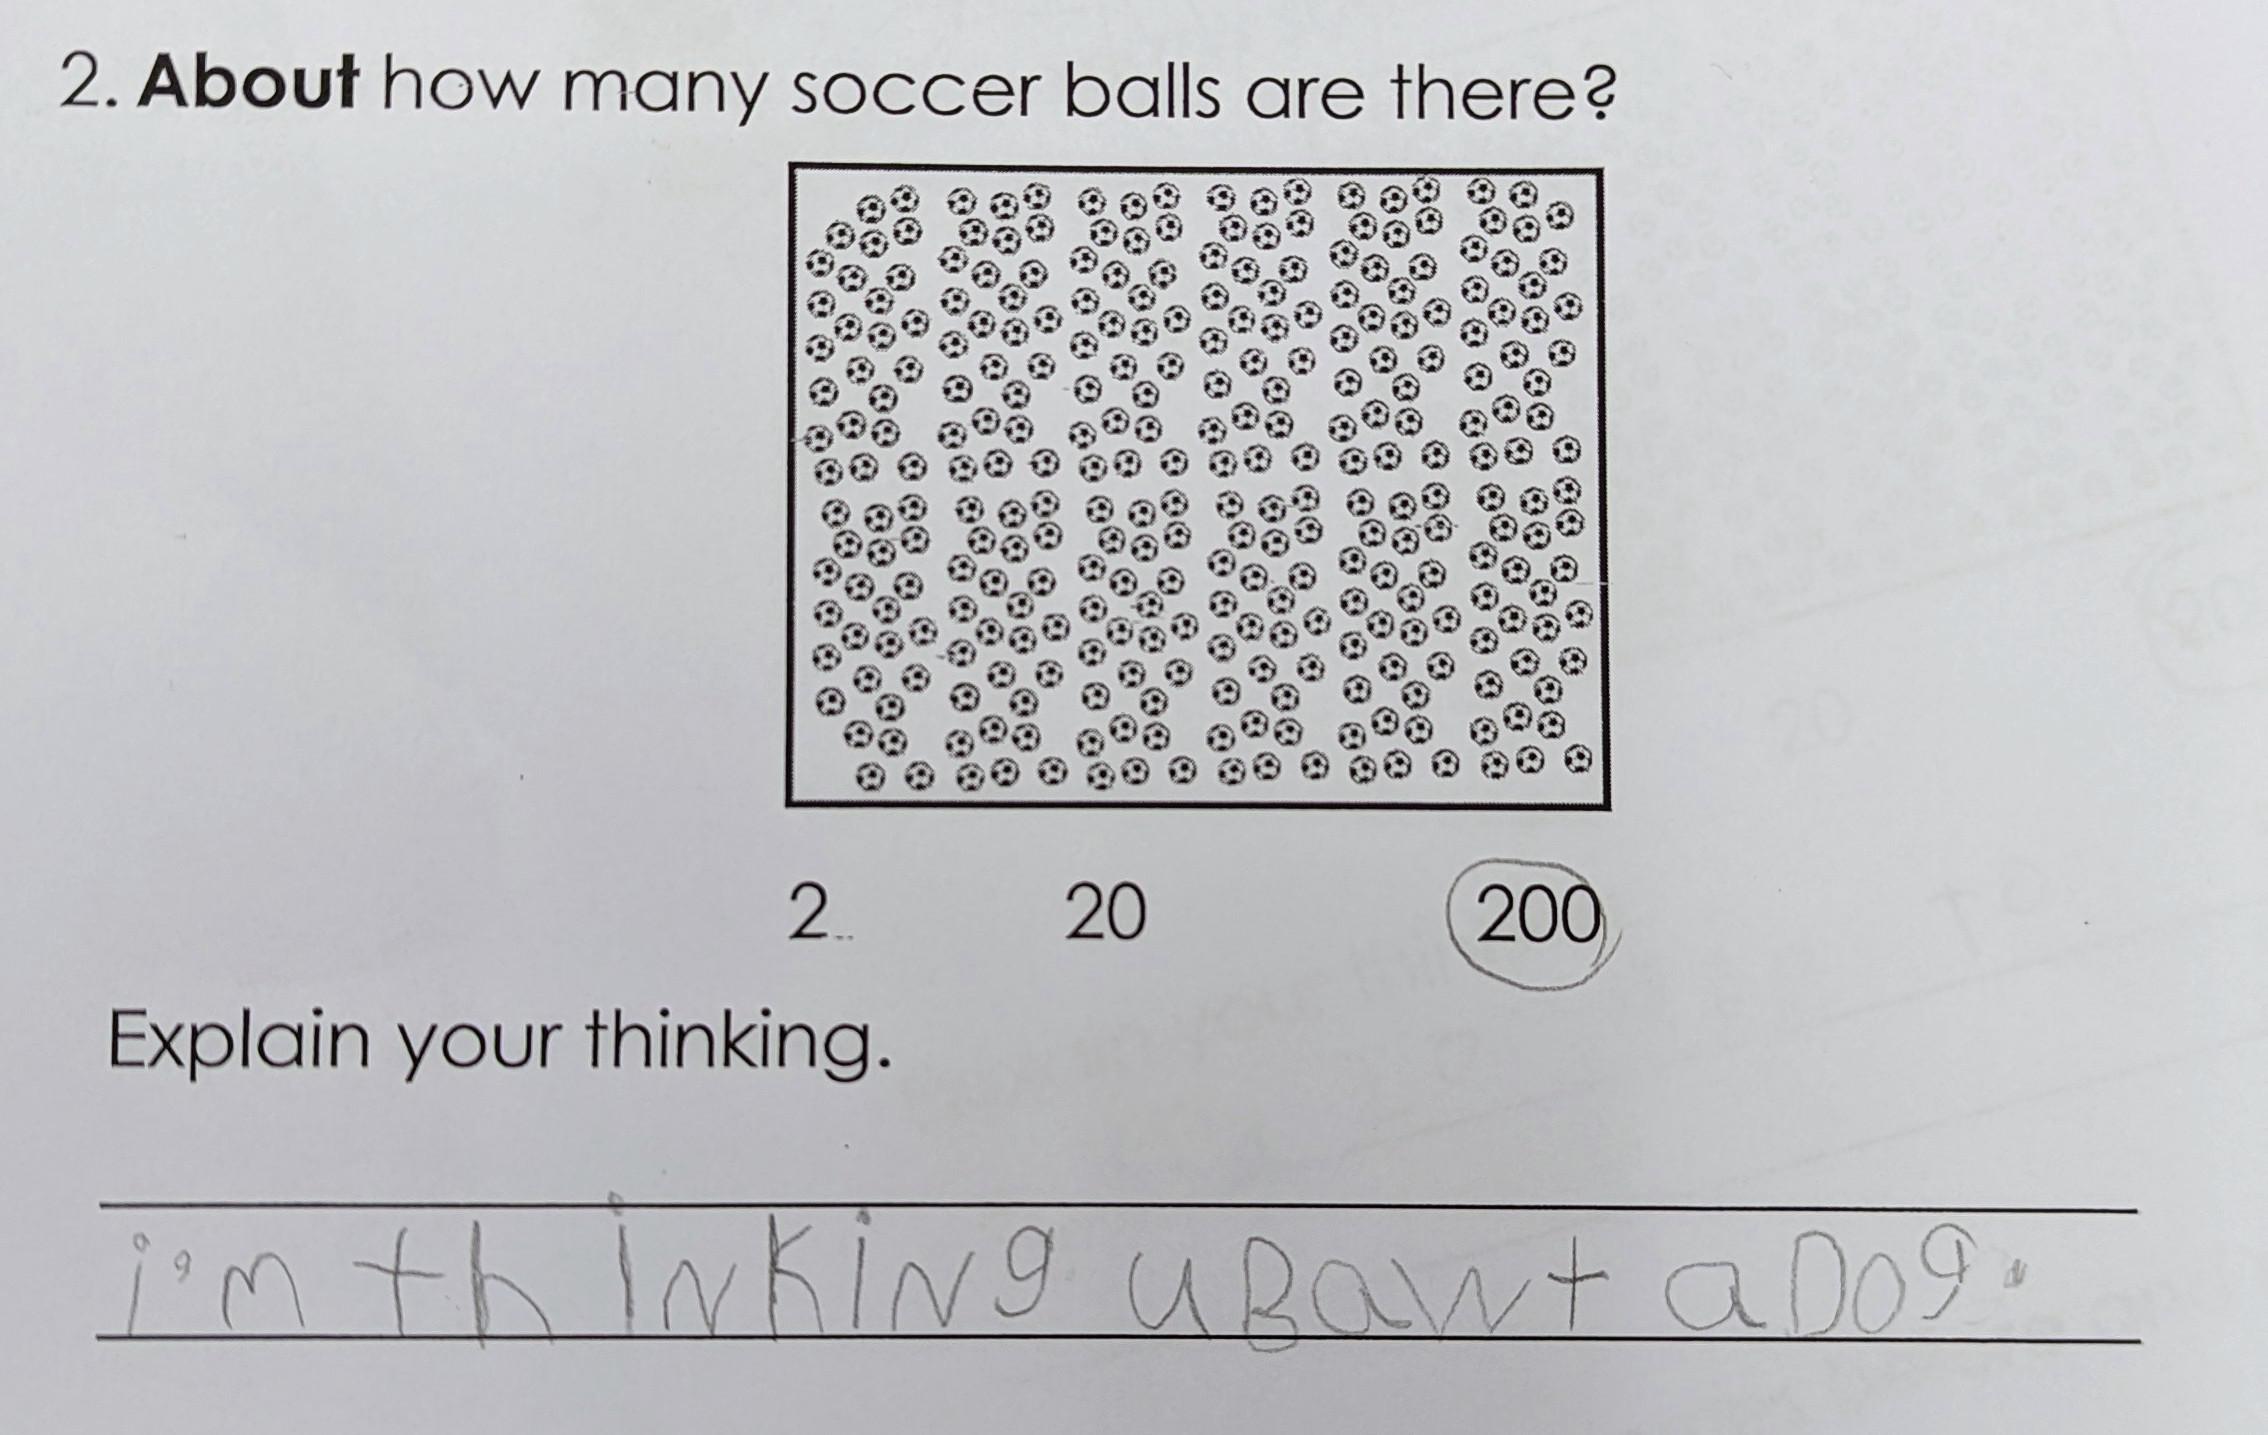 2. About how many soccer balls are there?
2 20 200
Explain your thinking.
i'm thinking uBawt a Dog.